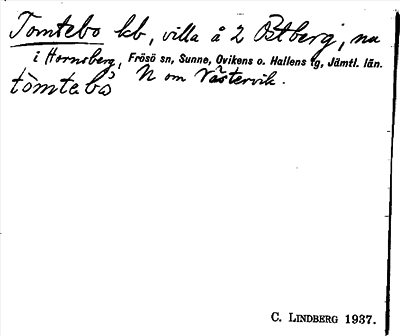 Tomtebo kb, villa å 2 Östberg, nu
i Hornsberg, Frösö sn, Sunne, Ovikens o. Hallens tg, Jämtl. län.
tòmtebò N om Västervik.
C. LINDBERG 1937.